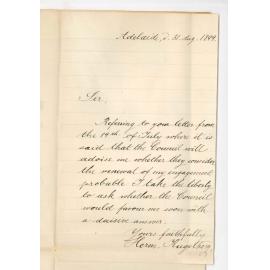 Adelaide, d. 31 Aug. 1899.
Sir,
Referring to your letter from
the 19th of July where it is
said that the Council will
advise me whether they consider
the renewal of my engagement
probable I take the liberty
to ask whether the Council
would favour me soon with
a decisive answer.
Yours faithfully
Herm.